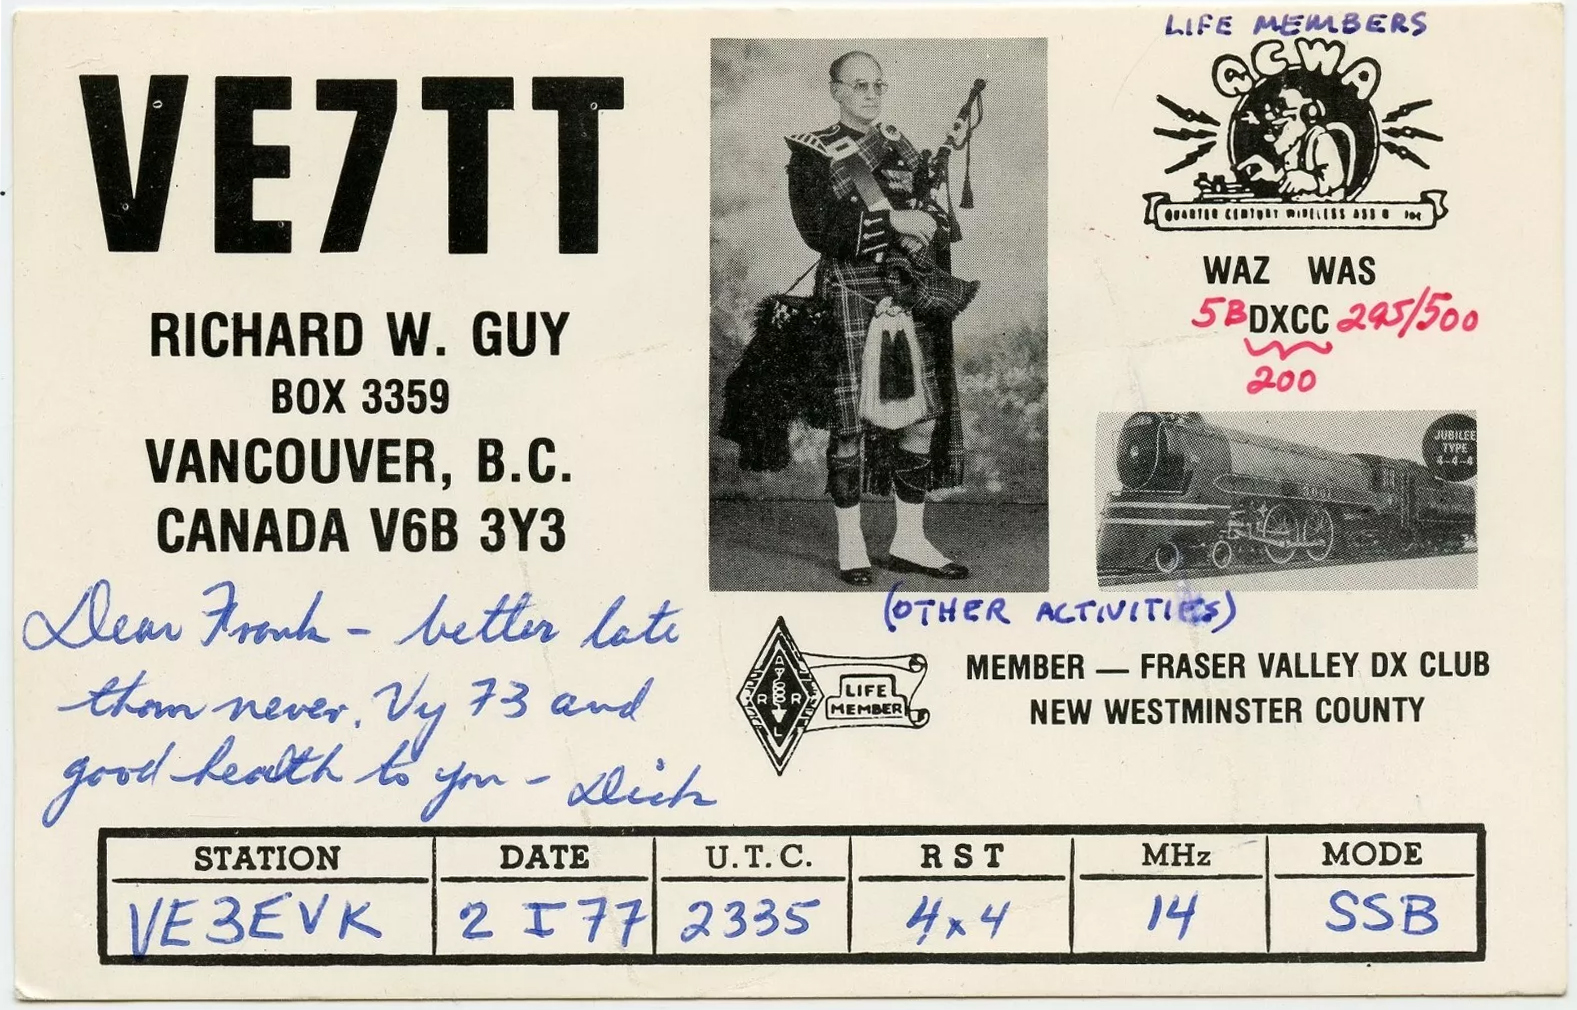 VE7TT
RICHARD W. GUY
BOX 3359
VANCOUVER, B.C.
CANADA V6B 3Y3
Dear Frank – better late
than never. Vy 73 and
good health to you – Dick
LIFE MEMBERS
QCWA
QUARTER CENTURY WIRELESS ASS'N INC
WAZ WAS
5BDXCC 295/500
200
JUBILEE
TYPE
4-4-4
(OTHER ACTIVITIES)
ARRL
LIFE
MEMBER
MEMBER — FRASER VALLEY DX CLUB
NEW WESTMINSTER COUNTY
STATION DATE U.T.C. RST MHz MODE
VE3EVK 2 I 77 2335 4x4 14 SSB